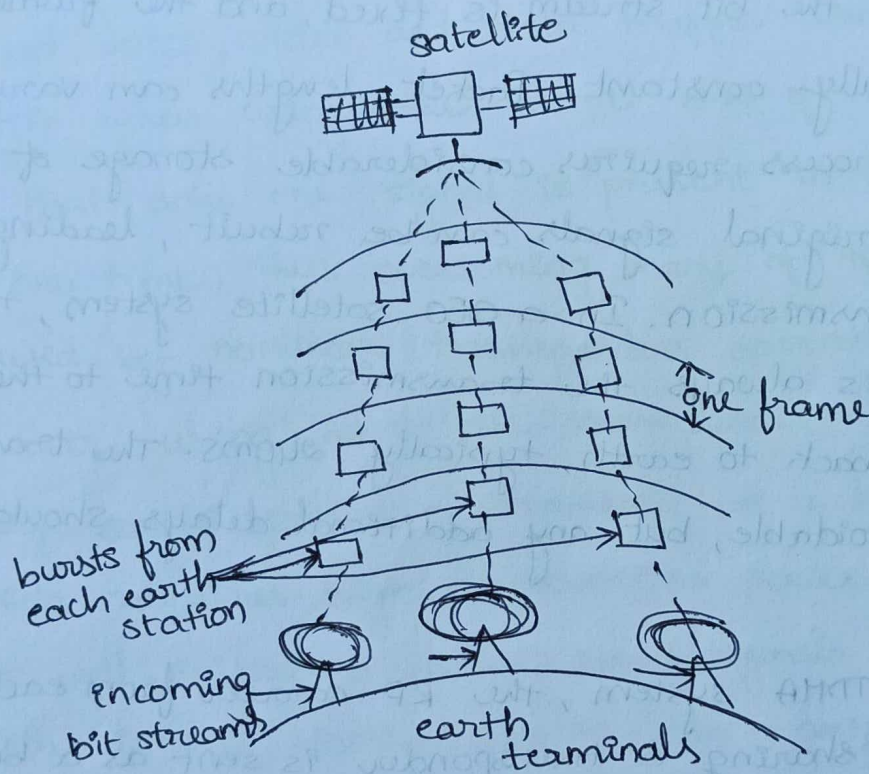 satellite
one frame
bursts from
each earth
station
incoming
bit streams
earth
terminals